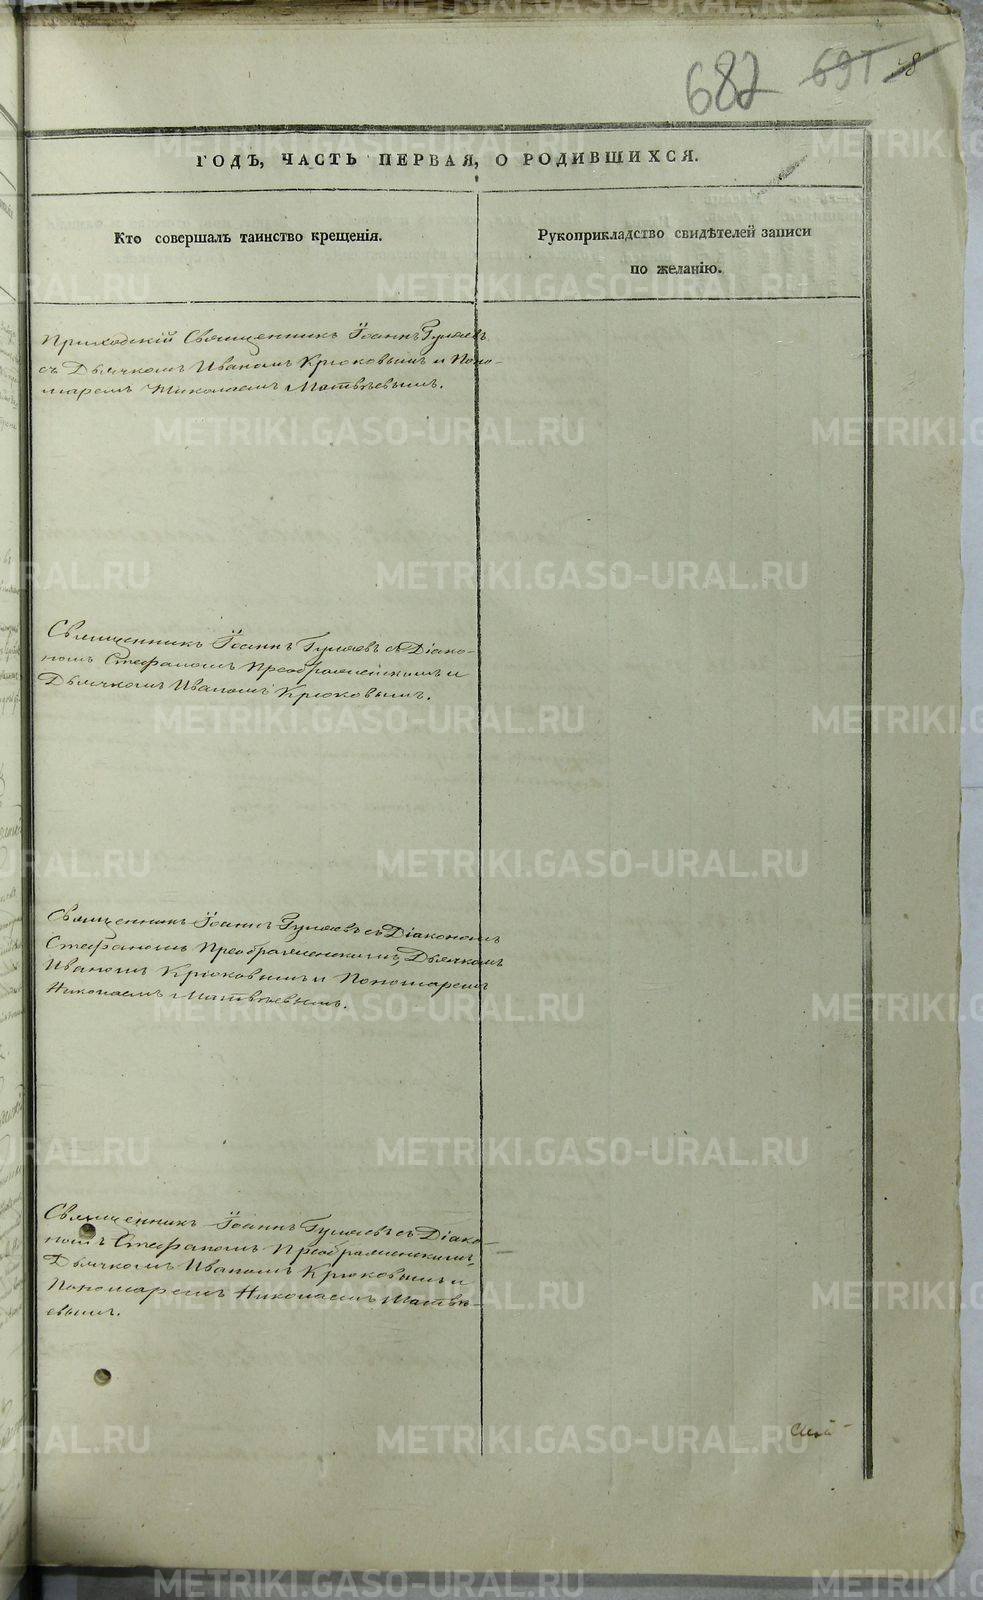 682 691 8
ГОДЪ, ЧАСТЬ ПЕРВАЯ, О РОДИВШИХСЯ.
Кто совершалъ таинство крещенія.
Рукоприкладство свидѣтелей записи
по желанію.
Приходскій Священникъ Іоаннъ Гуляевъ
съ Дьячкомъ Иваномъ Крюковымъ и Поно-
маремъ Николаемъ Матвѣевымъ.
Священникъ Іоаннъ Гуляевъ съ Діако-
номъ Стефаномъ Преображенскимъ и
Дьячкомъ Иваномъ Крюковымъ.
Священникъ Іоаннъ Гуляевъ съ Діакономъ
Стефаномъ Преображенскимъ, Дьячкомъ
Иваномъ Крюковымъ и Пономаремъ
Николаемъ Матвѣевымъ.
Священникъ Іоаннъ Гуляевъ съ Діако-
номъ Стефаномъ Преображенскимъ,
Дьячкомъ Иваномъ Крюковымъ и
Пономаремъ Николаемъ Матвѣ-
евымъ.
METRIKI.GASO-URAL.RU